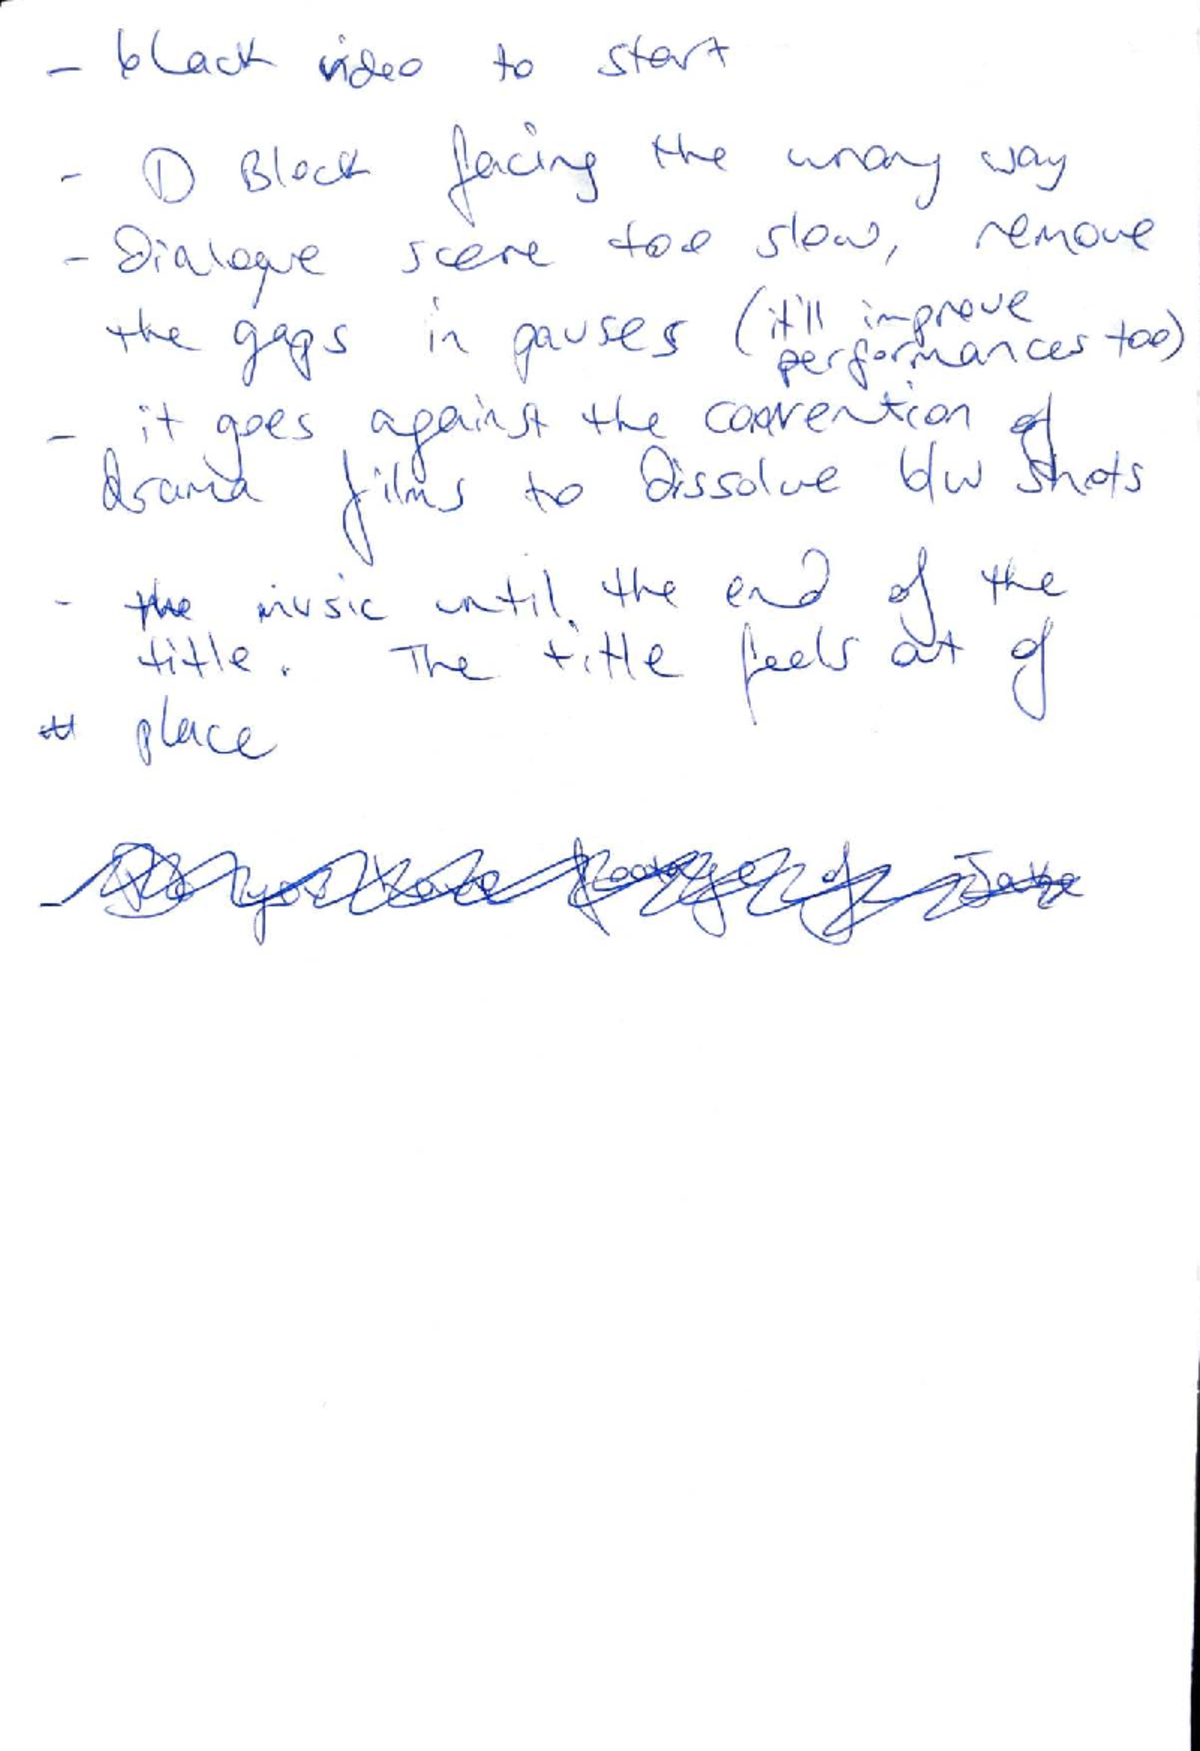 - black video to start
- D Block facing the wrong way
- Dialogue scene too slow, remove
the gaps in pauses (it'll improve
performances too)
- it goes against the convention of
drama films to dissolve b/w shots
- the music until the end of the
title. The title feels out of
place
- Do you have footage of